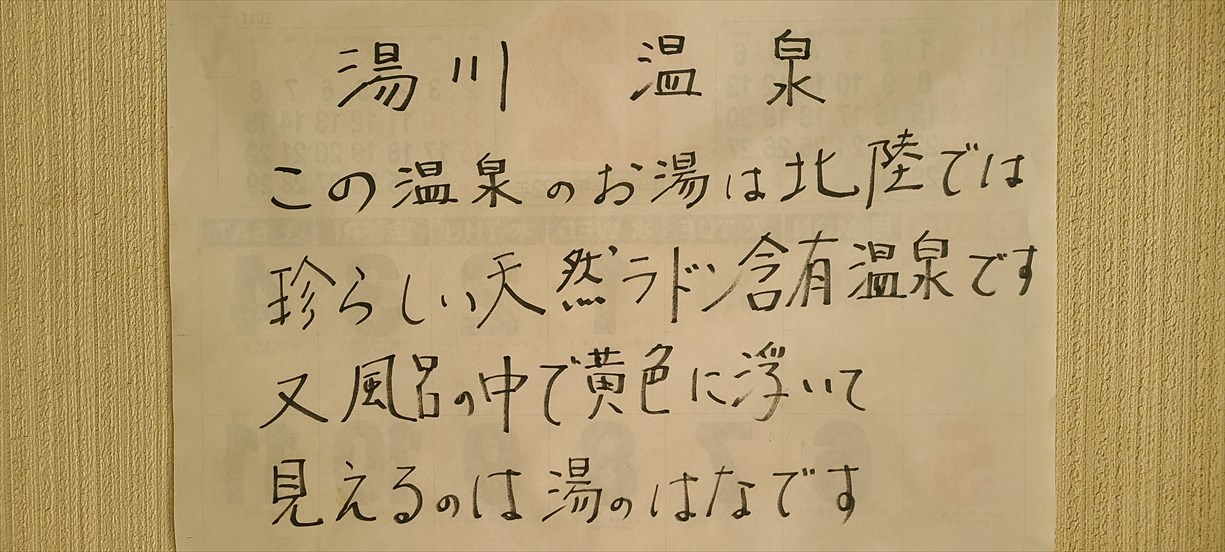 湯川 温泉
この温泉のお湯は北陸では
珍らしい天然ラドン含有温泉です
又風呂の中で黄色に浮いて
見えるのは湯のはなです